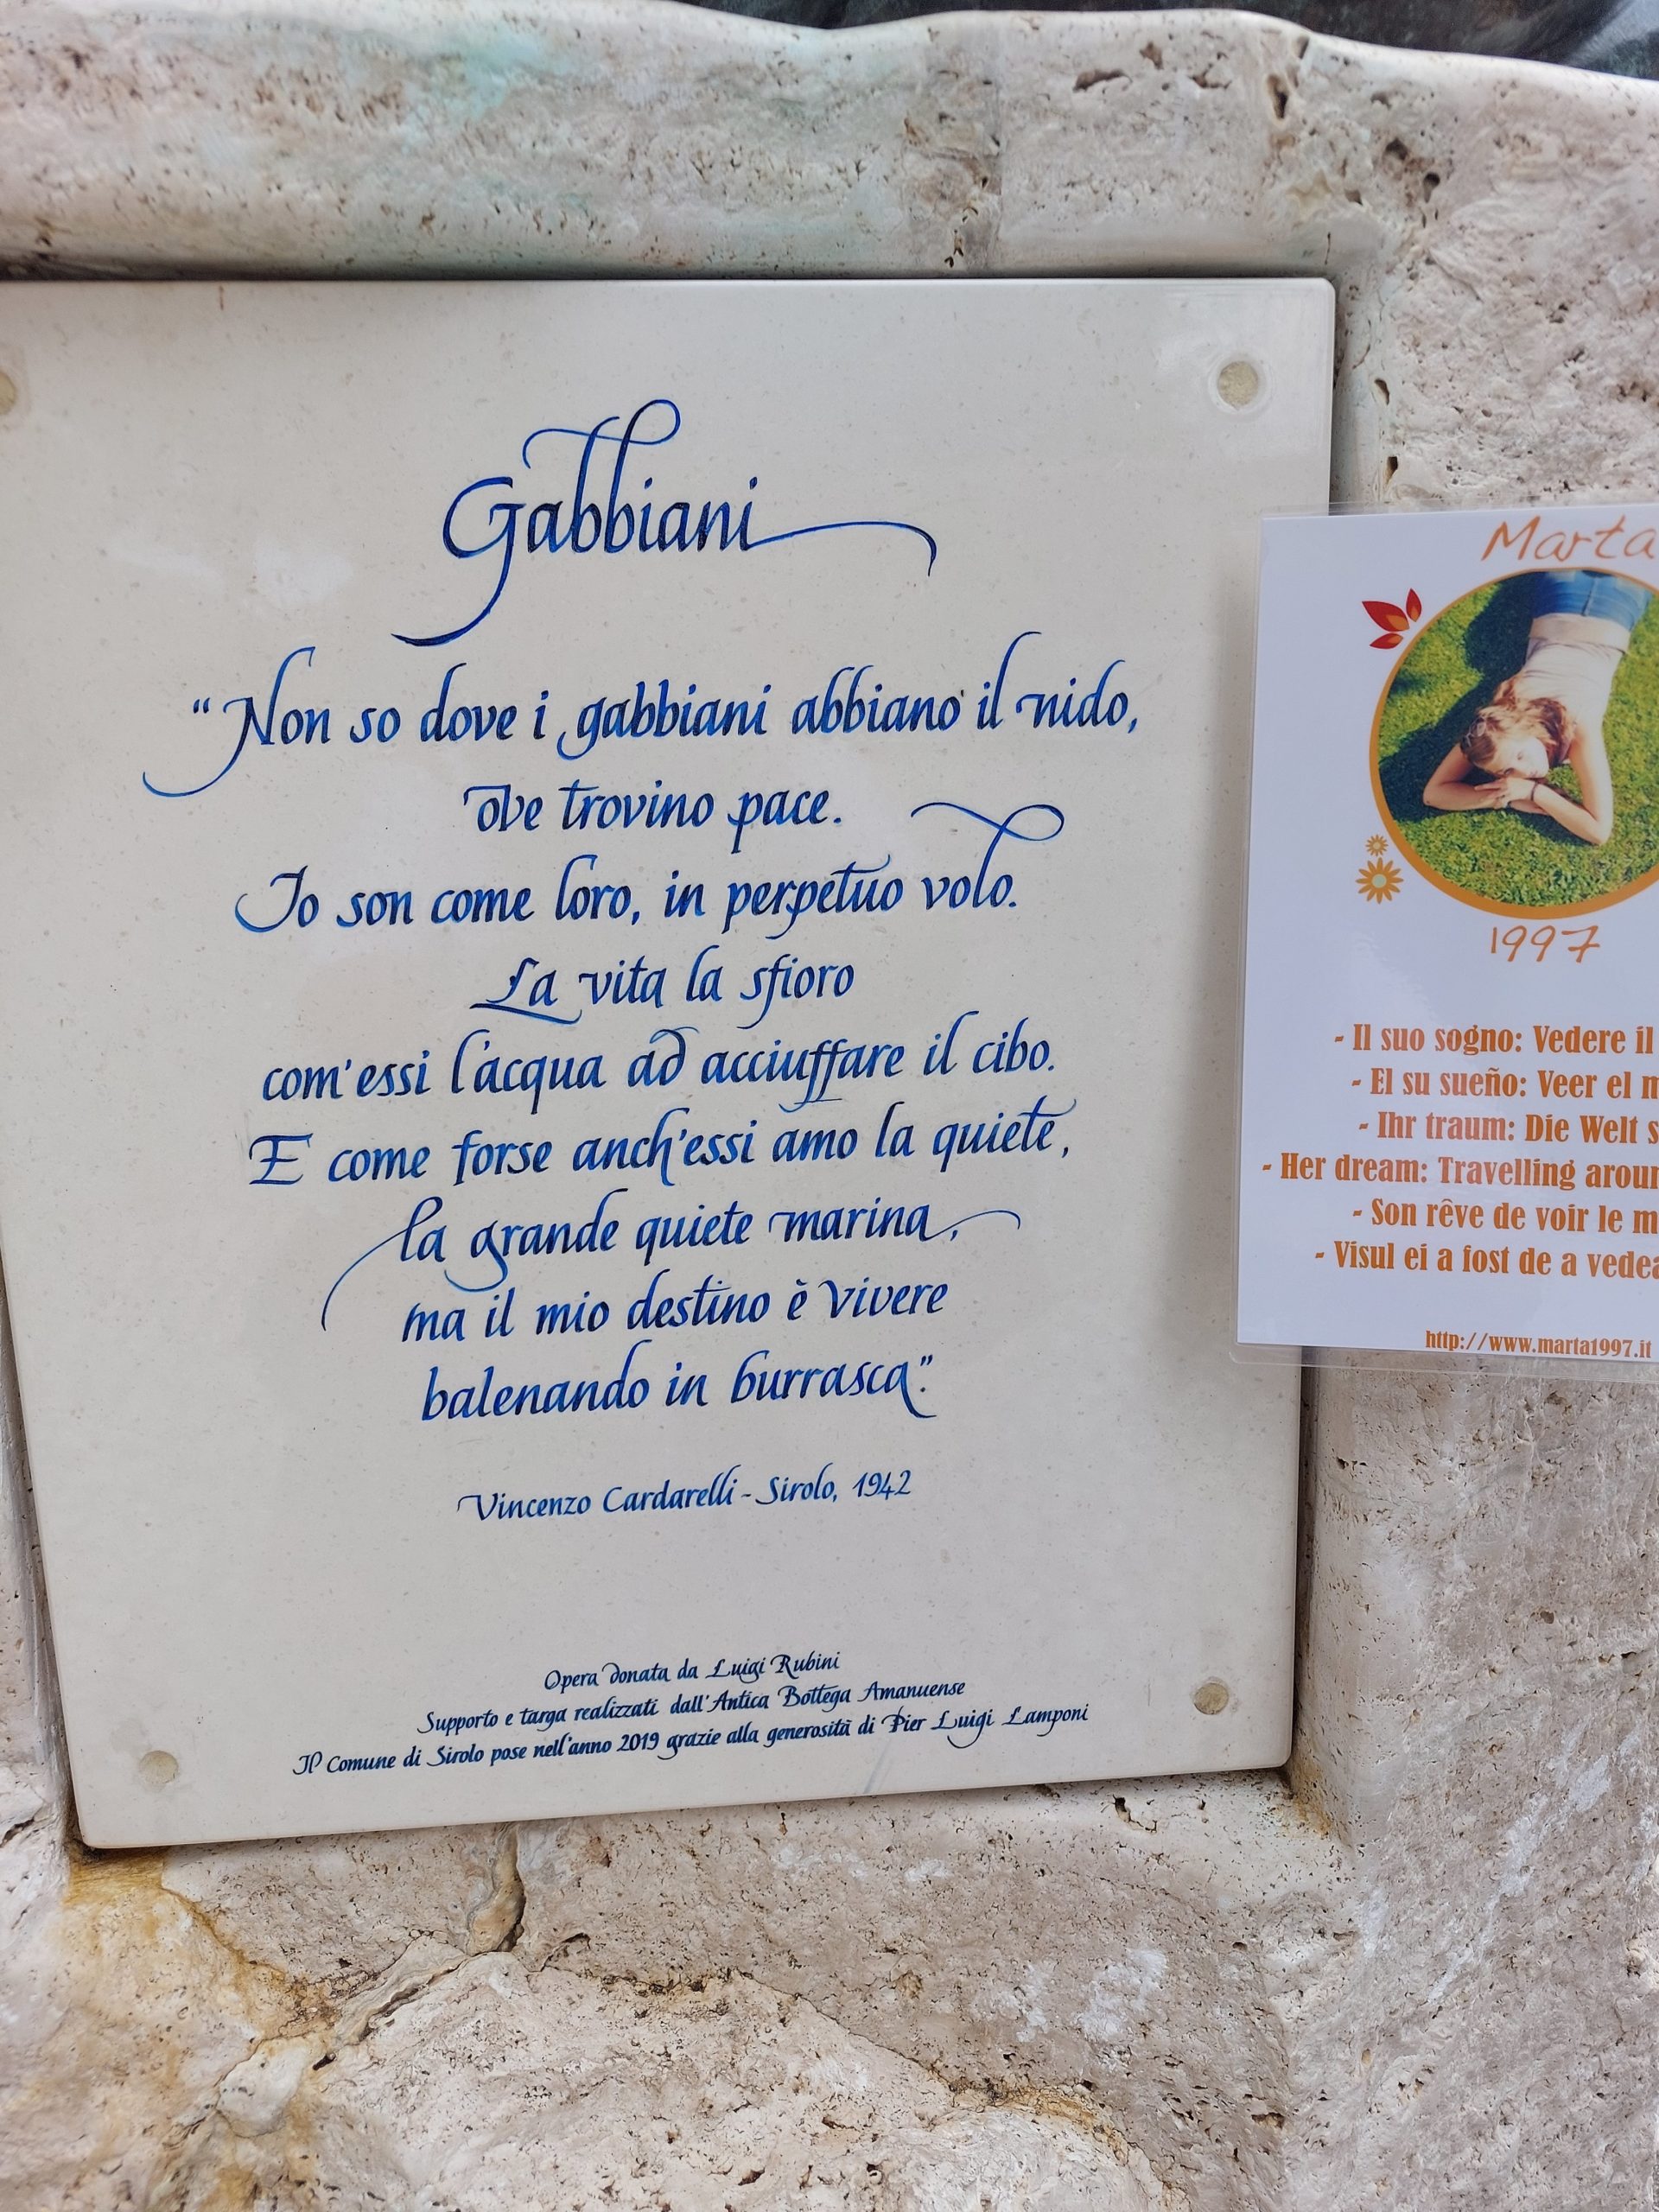 Gabbiani
"Non so dove i gabbiani abbiano il nido,
ove trovino pace.
Io son come loro, in perpetuo volo.
La vita la sfioro
com'essi l'acqua ad acciuffare il cibo.
E come forse anch'essi amo la quiete,
la grande quiete marina,
ma il mio destino è vivere
balenando in burrasca".
Vincenzo Cardarelli - Sirolo, 1942
Opera donata da Luigi Rubini
Supporto e targa realizzati dall'Antica Bottega Amanuense
Il Comune di Sirolo pose nell'anno 2019 grazie alla generosità di Pier Luigi Lamponi
Marta
1997
- Il suo sogno: Vedere il
- El su sueño: Veer el m
- Ihr traum: Die Welt s
- Her dream: Travelling aroun
- Son rêve de voir le m
- Visul ei a fost de a vedea
http://www.marta1997.it